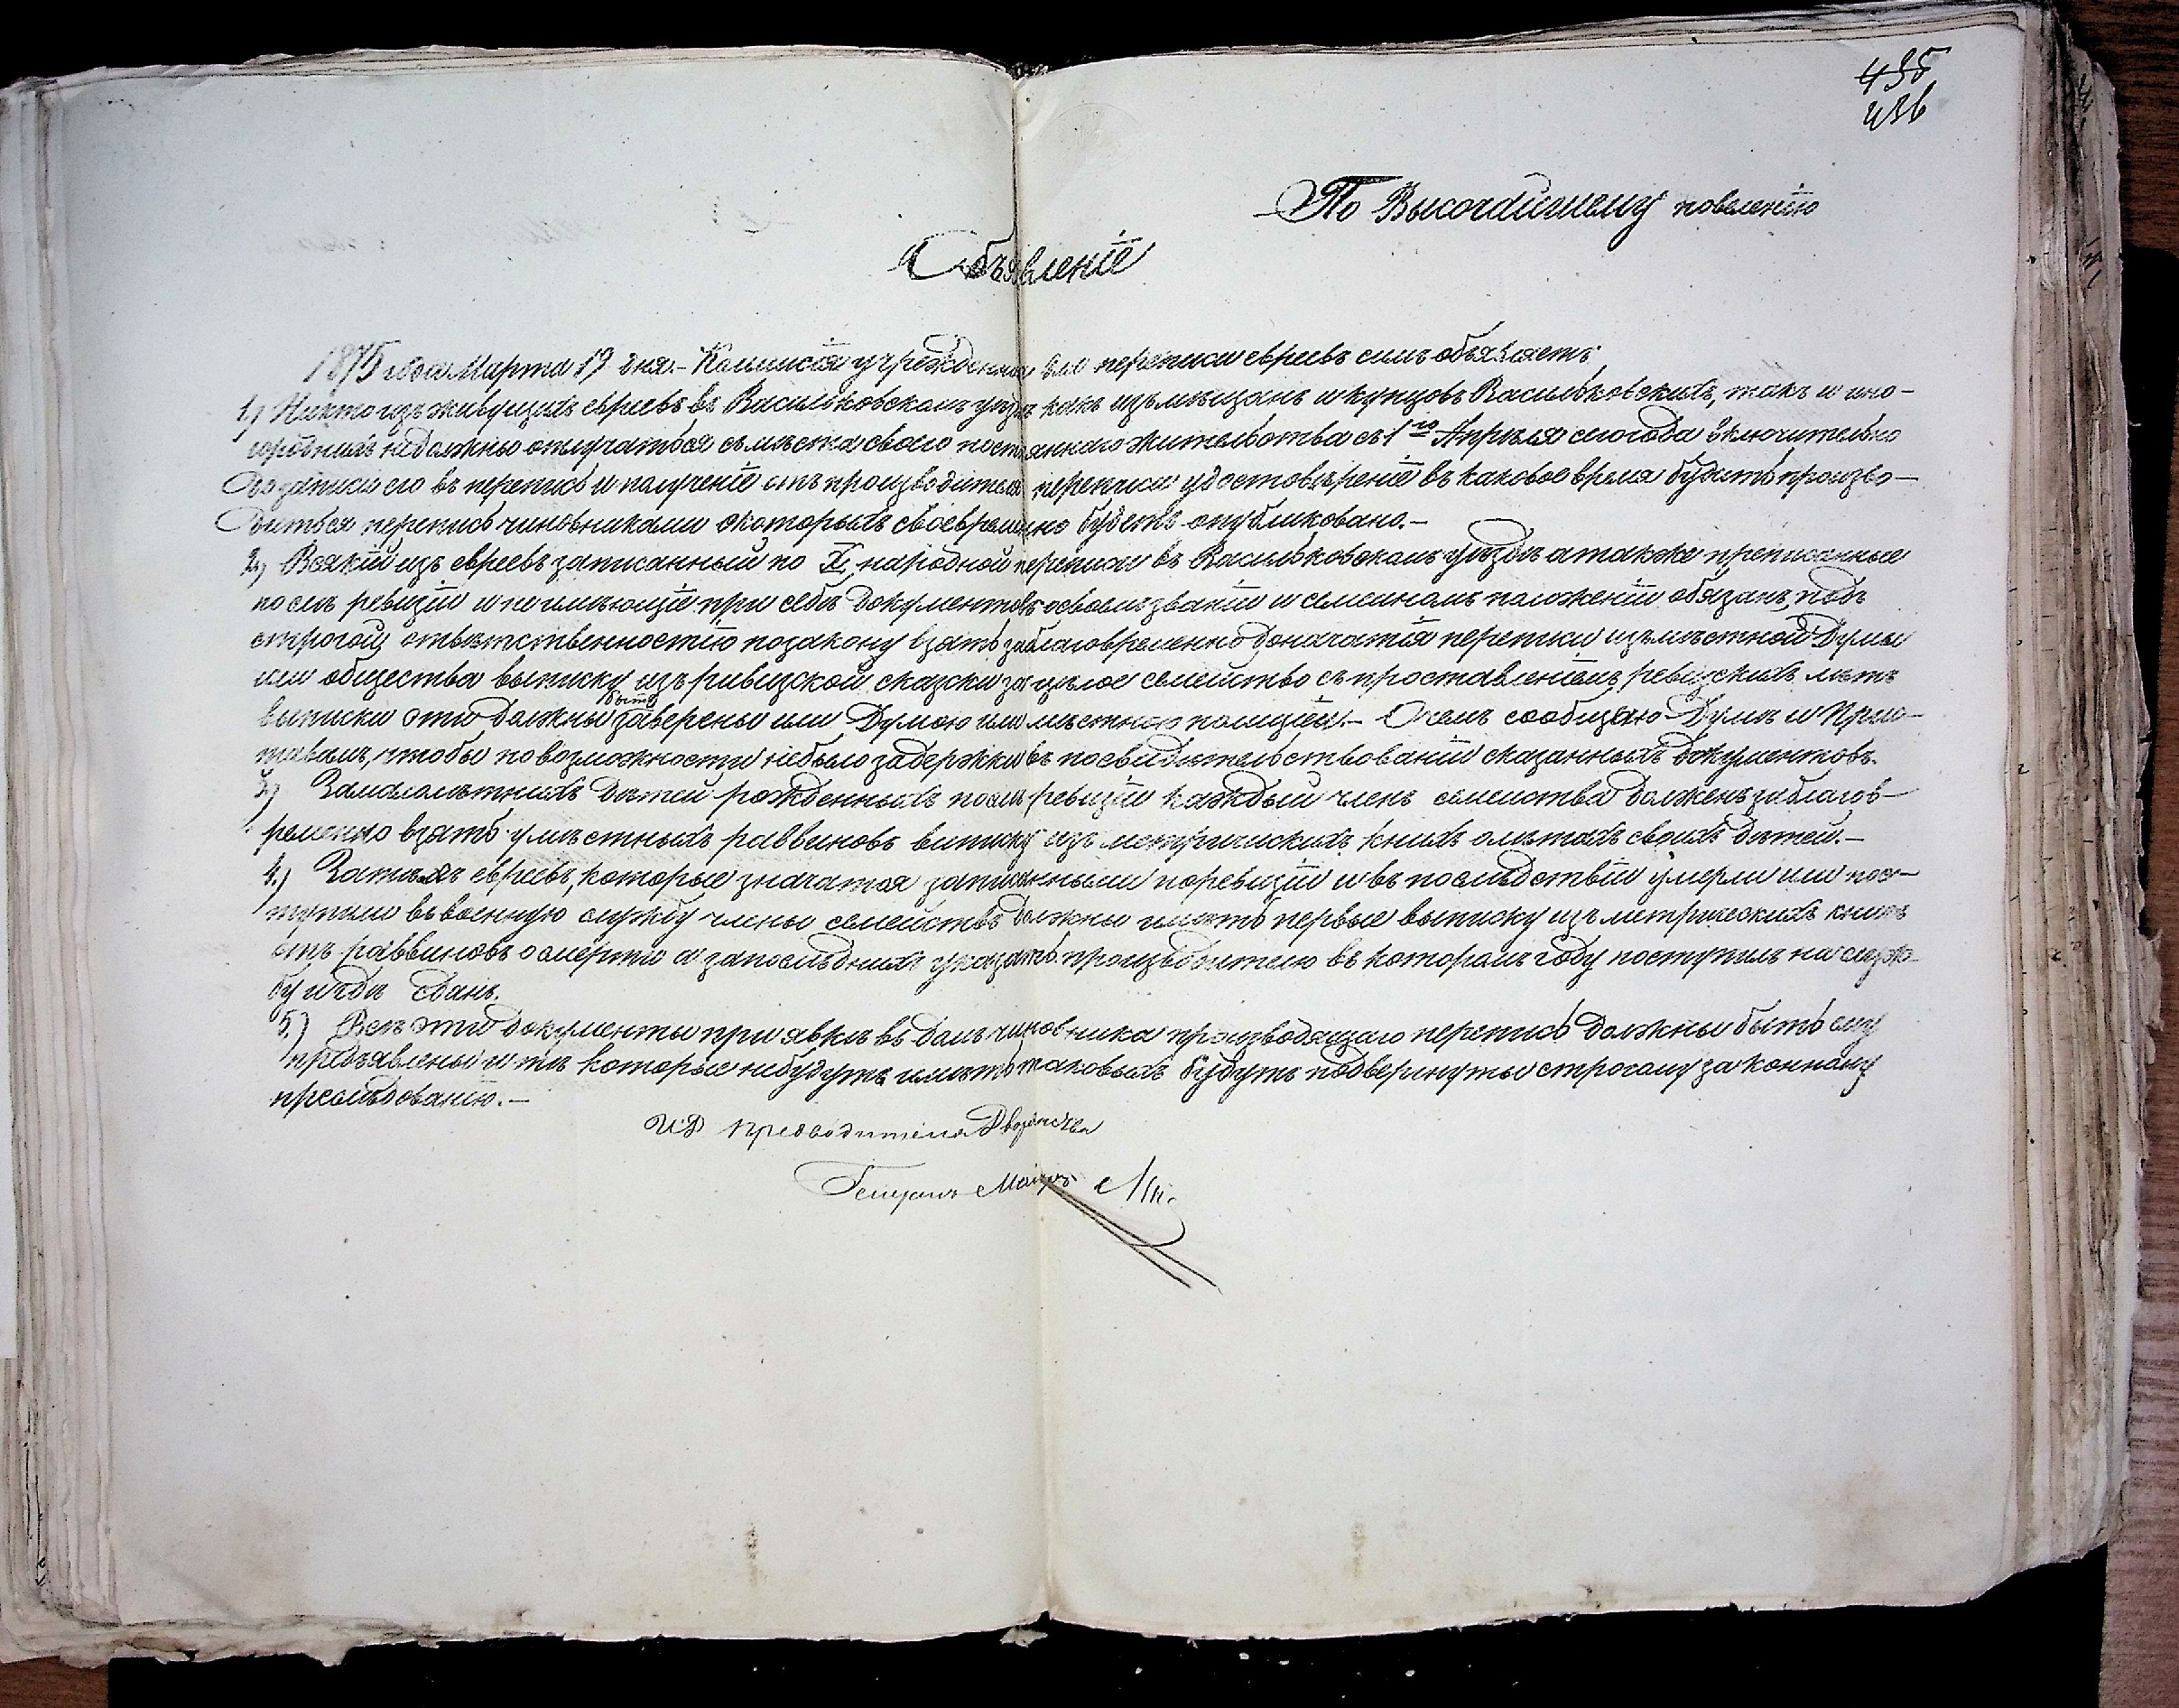 435
436
По Высочайшему повеленію
Объявленіе
1875 года Марта 19 дня. - Коммисія учрежденная для переписи евреевъ симъ объявляетъ:
1) Никто изъ живущихъ евреевъ въ Васильковскомъ уездѣ какъ изъ мѣщанъ и купцовъ Васильковскихъ, такъ и ино-
городныхъ не должны отлучаться съ мѣста своего постояннаго жительства съ 1го Апрѣля сего года включительно
до записи его въ перепись и полученіе отъ производителя переписи удостовѣреніе въ каковое время будетъ произво-
диться перепись чиновниками о которыхъ своевременно будетъ опубликовано. -
2) Всякій изъ евреевъ записанный по X народной переписи въ Васильковскомъ уѣздѣ а также преписанные
послѣ ревизіи и не имѣющіе при себѣ документовъ о своемъ званіи и семейномъ положеніи обязанъ, подъ
строгой ответственностію по закону взять заблаговременно до начатія переписи изъ мѣстной Думы
или общества выписку изъ ревизской сказски за цѣлое семейство съ проставленіемъ ревизскихъ лѣтъ
выписки эти должны быть заверены или Думою или мѣстною полиціею. - О чемъ сообщаю Думѣ и Прис-
тавамъ, чтобы по возможности не было задержки въ посвидѣтельствованіи сказанныхъ документовъ.
3) За малолѣтнихъ дѣтей рожденныхъ послѣ ревизіи каждый членъ семейства долженъ заблагов-
ременно взять у мѣстныхъ раввиновъ выписку изъ метрическихъ книгъ о лѣтахъ своихъ дѣтей. -
4.) За тѣхъ евреевъ, которые значатся записанными по ревизіи и въ послѣдствіи умерли или пос-
тупили въ военную службу члены семействъ должны имѣть первые выписку изъ метрическихъ книгъ
отъ раввиновъ о смерти а за послѣднихъ указать производителю въ которомъ году поступилъ на служ-
бу и гдѣ сданъ.
5.) Всѣ эти документы при явкѣ въ домъ чиновника производящаго перепись должны быть ему
предъявлены и тѣ которые не будутъ имѣть таковыхъ будутъ подвергнуты строгому законному
преслѣдованію. -
И.Д Предводителя Дворянства
Генералъ Маіоръ